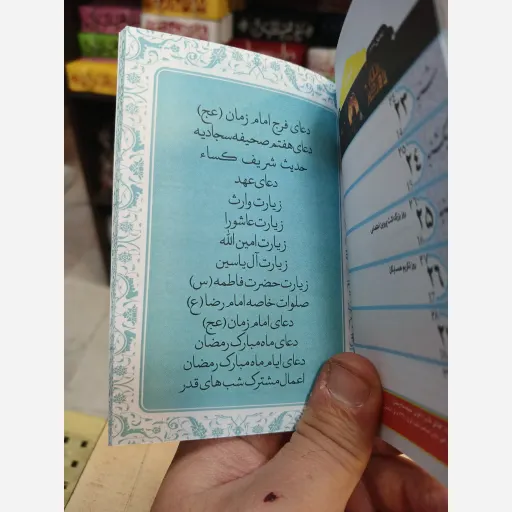 دعای فرج امام زمان (عج)
دعای هفتم صحیفه سجادیه
حدیث شریف کساء
دعای عهد
زیارت وارث
زیارت عاشورا
زیارت امین الله
زیارت آل یاسین
زیارت حضرت فاطمه (س)
صلوات خاصه امام رضا (ع)
دعای امام زمان (عج)
دعای ماه مبارک رمضان
دعای ایام ماه مبارک رمضان
اعمال مشترک شب های قدر
۲۳
۲۴
۲۵
۲۶